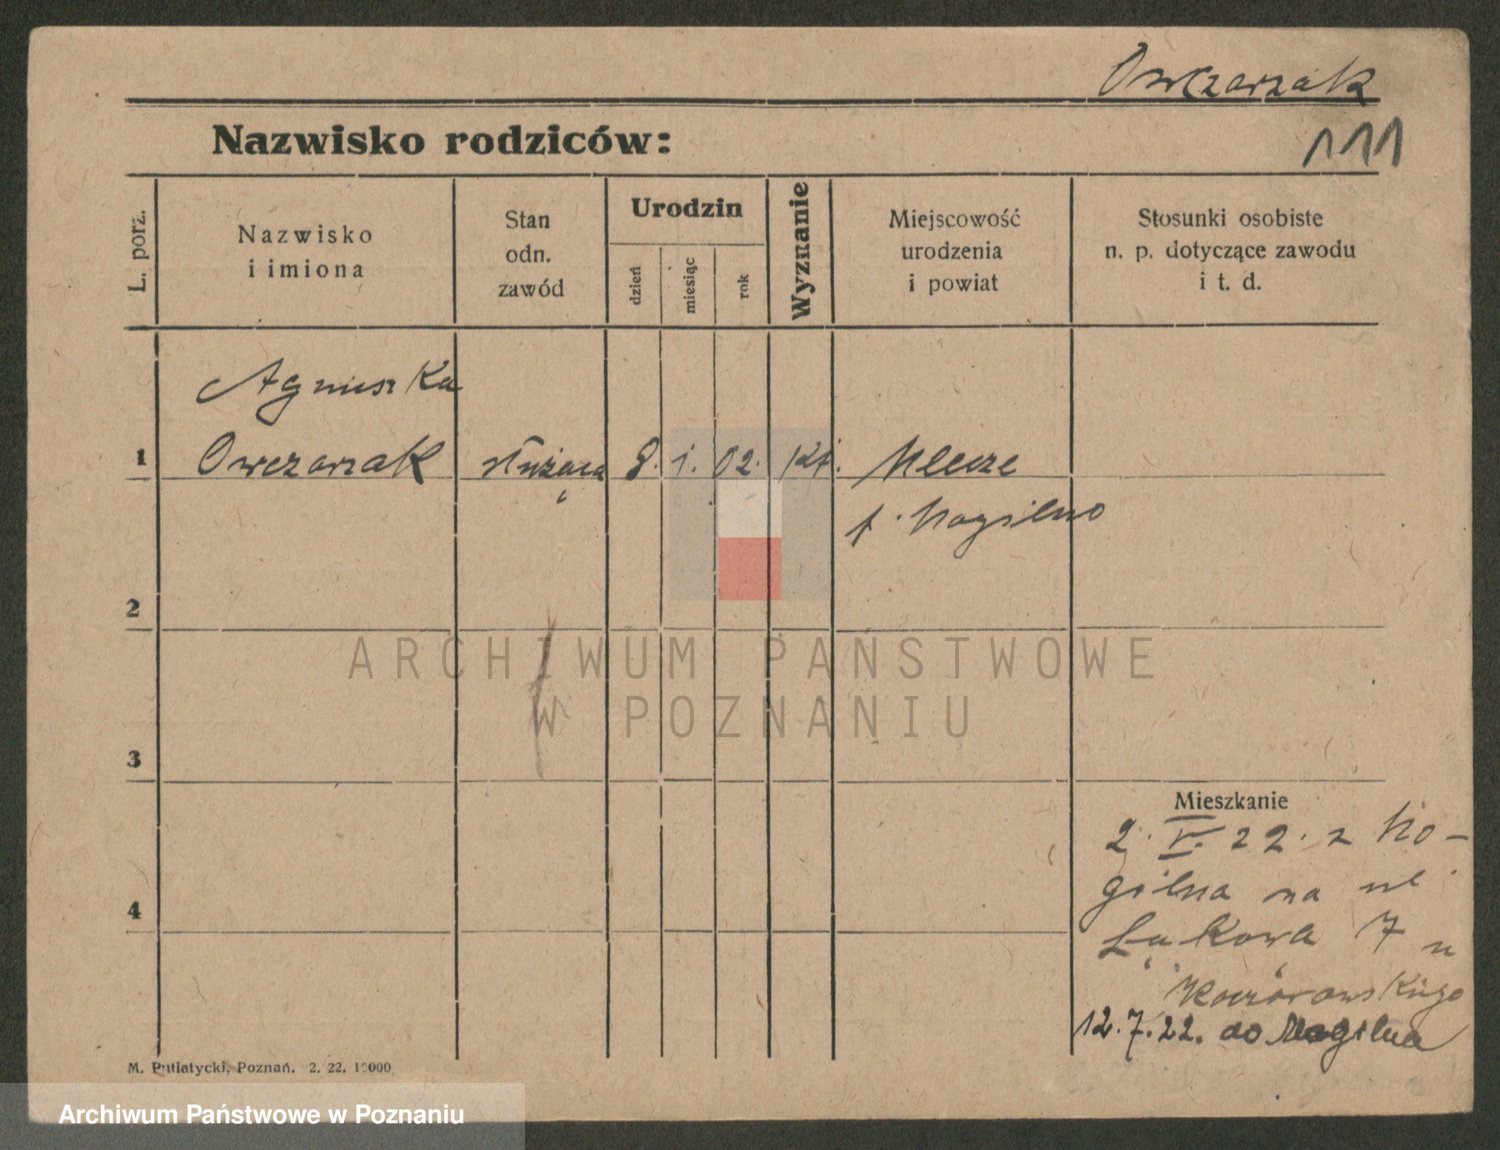 Owczarzak
Nazwisko rodziców:
111
L. porz.
Nazwisko
i imiona
Stan
odn.
zawód
Urodzin
dzień
miesiąc
rok
Wyznanie
Miejscowość
urodzenia
i powiat
Stosunki osobiste
n. p. dotyczące zawodu
i t. d.
Agnieszka
1 Owczarzak służąca 8. 1. 02. kt.
p. Mogilno
2
ARCHIWUM PAŃSTWOWE
W POZNANIU
3
Mieszkanie
2. V. 22. z Mo-
gilna na ul.
4
Łąkowa 7 u
12.7.22. do Mogilna
M. Putiatycki, Poznań. 2. 22. 10000
Archiwum Państwowe w Poznaniu